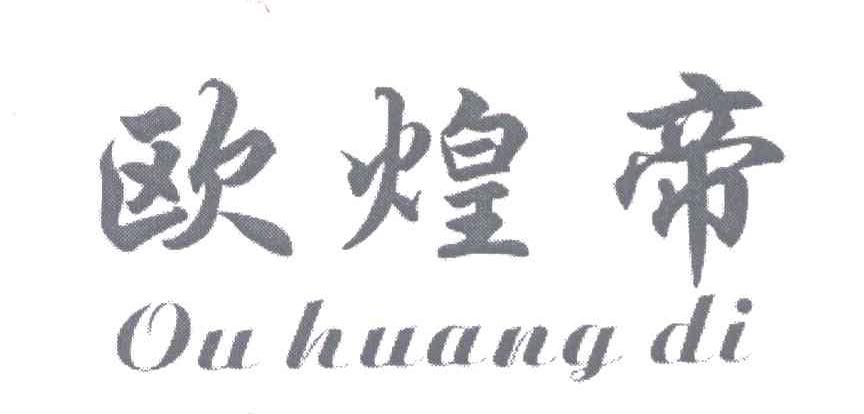 欧煌帝
Ou huang di